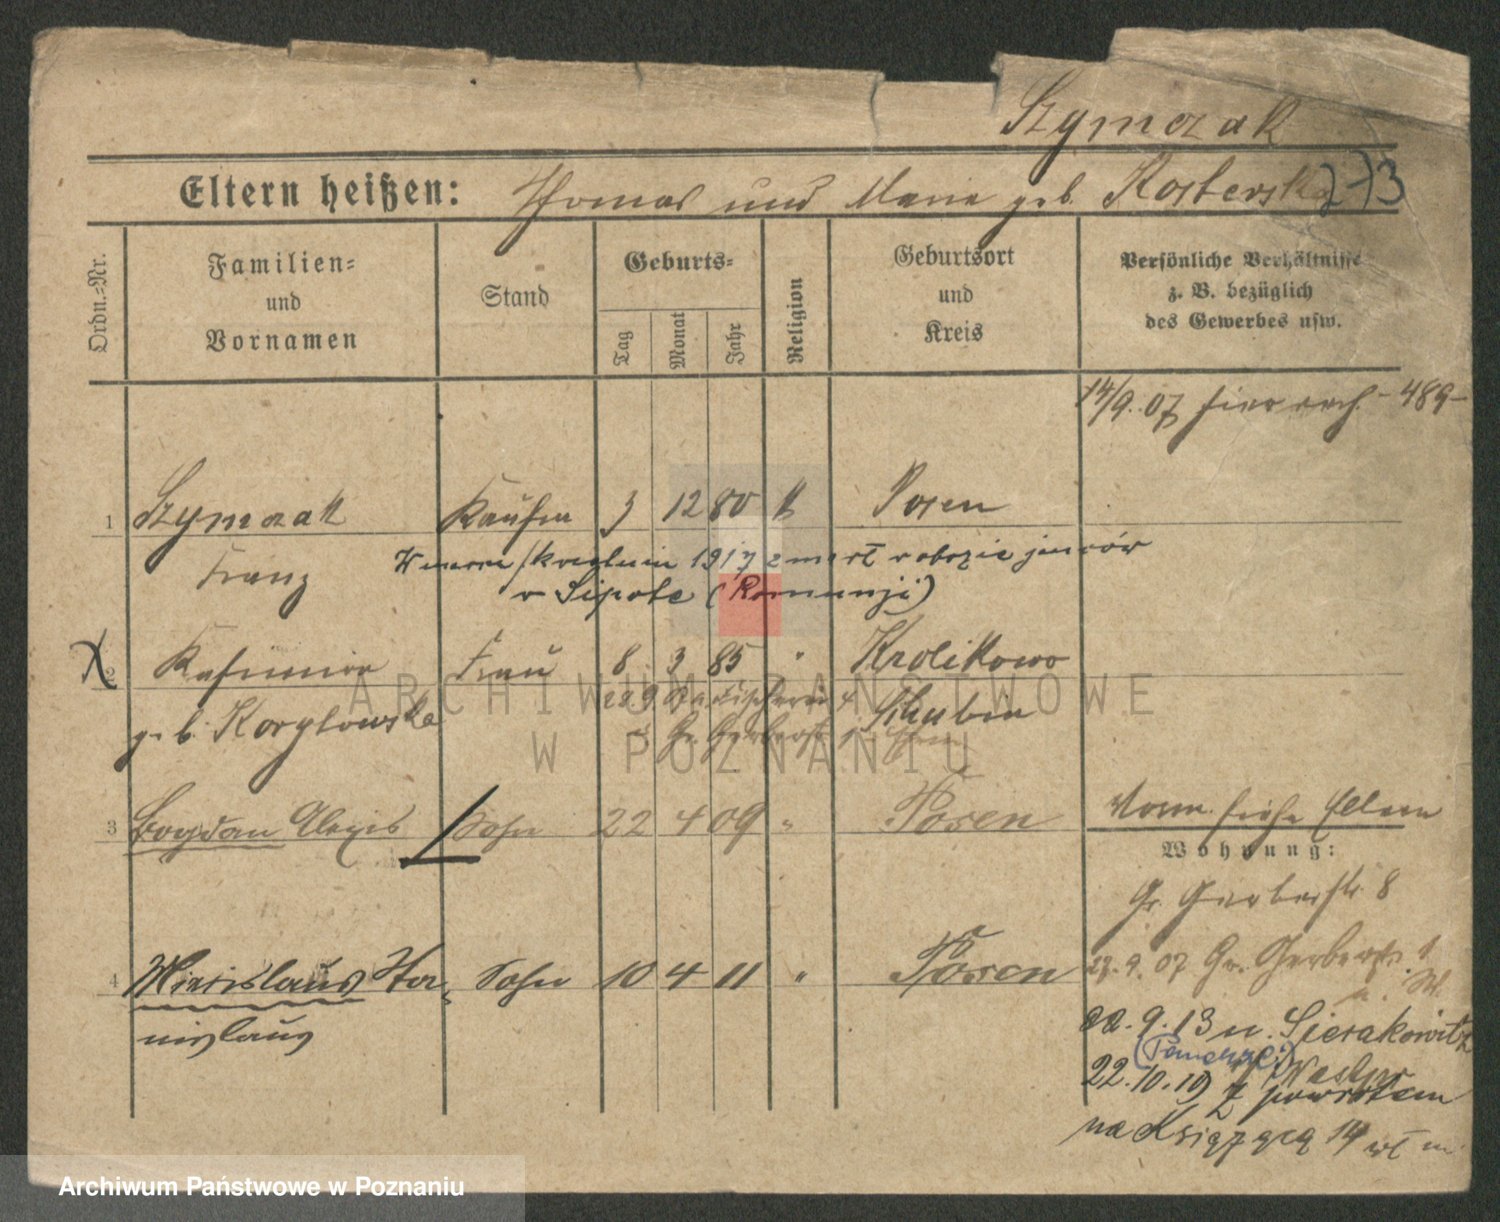 Szymczak
Eltern heißen: Thomas und Marie geb. Kosterska
273
Ordn.-Nr.
Familien-
und
Vornamen
Stand
Geburts-
Tag
Monat
Jahr
Religion
Geburtsort
und
Kreis
Persönliche Verhältnisse
z. B. bezüglich
des Gewerbes usw.
14/9.07 489
1 Szymczak Kaufm 3 12 80 k Posen
Franz
1917 zmarł w obozie jeńców
w Sipote (Romunji)
2 Kasimira Frau 8 3 85 " Krolikowo
geb. Korytowska Schubin
3 Bogdan Alexis Sohn 22 4 09 " Posen
Vorm. siehe Eltern
Wohnung:
Gr. Gerberstr. 8
27.9.07 Gr. Gerberstr. 1
4 Miecislaus Sta- Sohn 10 4 11 " Posen
nislaus
22.9.13 n. Sierakowitz
22.10.19 z powrotem
na Książęcą 14
ARCHIWUM PAŃSTWOWE
W POZNANIU
Archiwum Państwowe w Poznaniu